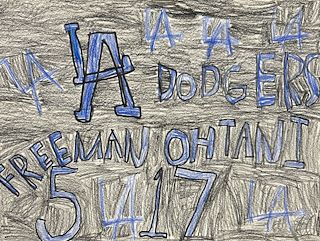 LA LA LA
LA LA DODGERS
FREEMAN OHTANI
5 LA 17 LA